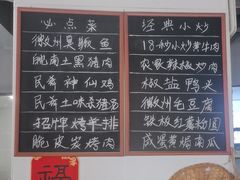 必点菜
徽州臭鳜鱼
皖南土黑猪肉
民斋神仙鸡
民斋土味花猪汤
招牌烤羊排
脆皮炭烤肉
经典小炒
18秒小炒黄牛肉
农家辣椒炒肉
椒盐鸭头
徽州毛豆腐
铁板红薯粉圆
咸蛋黄焗南瓜
福